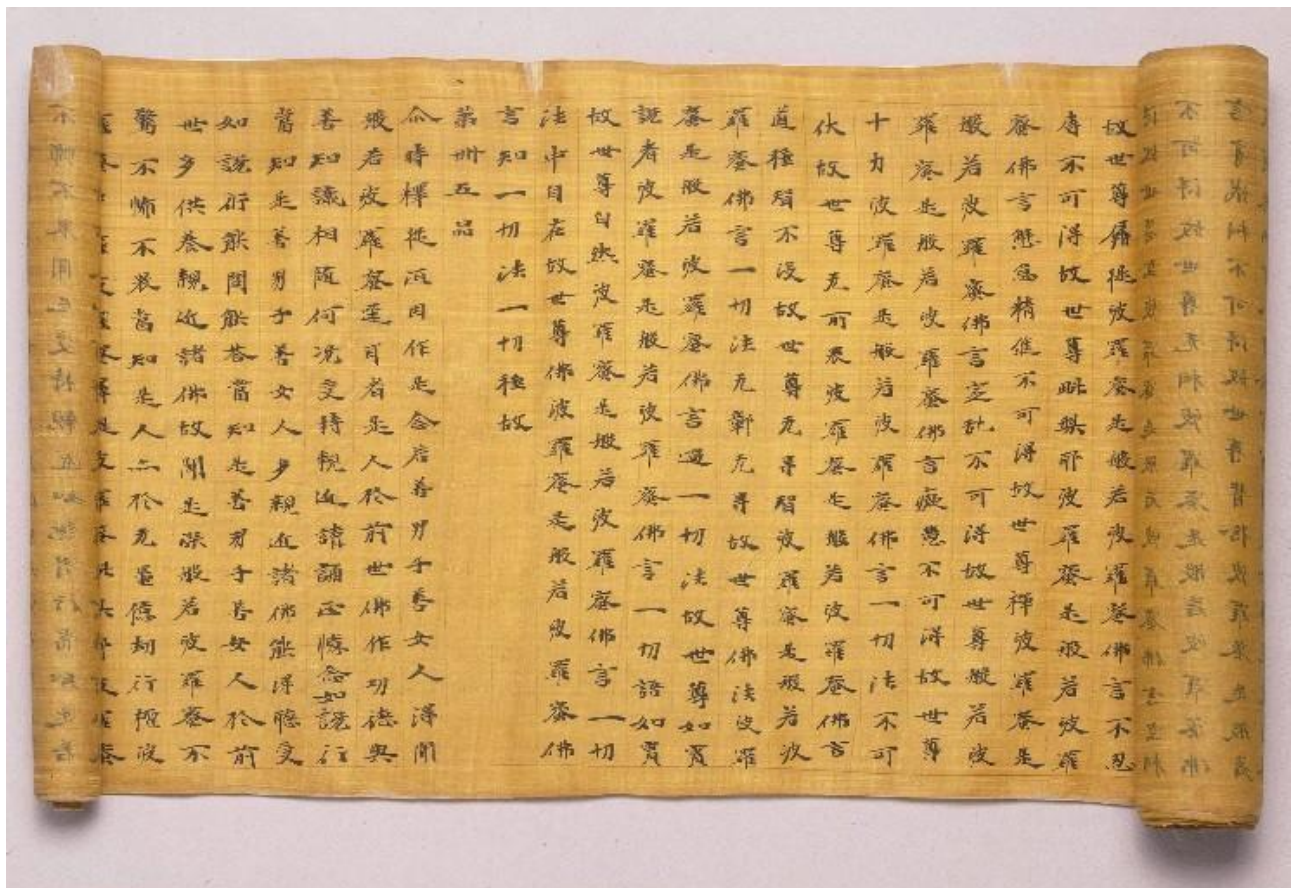 故世尊羼提波羅蜜是般若波羅蜜佛言不忍
辱不可得故世尊毗梨耶波羅蜜是般若波羅
蜜佛言懈怠精進不可得故世尊禪波羅蜜是
般若波羅蜜佛言定亂不可得故世尊般若波
羅蜜是般若波羅蜜佛言癡慧不可得故世尊
十力波羅蜜是般若波羅蜜佛言一切法不可
伏故世尊无所畏波羅蜜是般若波羅蜜佛言
道種智不沒故世尊无㝵智波羅蜜是般若波
羅蜜佛言一切法无鄣无㝵故世尊佛法波羅
蜜是般若波羅蜜佛言過一切法故世尊如實
說者波羅蜜是般若波羅蜜佛言一切語如實
故世尊自然波羅蜜是般若波羅蜜佛言一切
法中自在故世尊佛波羅蜜是般若波羅蜜佛
言知一切法一切種故
第卌五品
尒時釋提洹因作是念若善男子善女人得聞
般若波羅蜜逕耳者是人於前世佛作功德與
善知識相隨何況受持親近讀誦正憶念如說行
當知是善男子善女人多親近諸佛能得聽受
如說行能問能答當知是善男子善女人於前
世多供養親近諸佛故聞是深般若波羅蜜不
驚不怖不畏當知是人亦於无量億劫行檀波